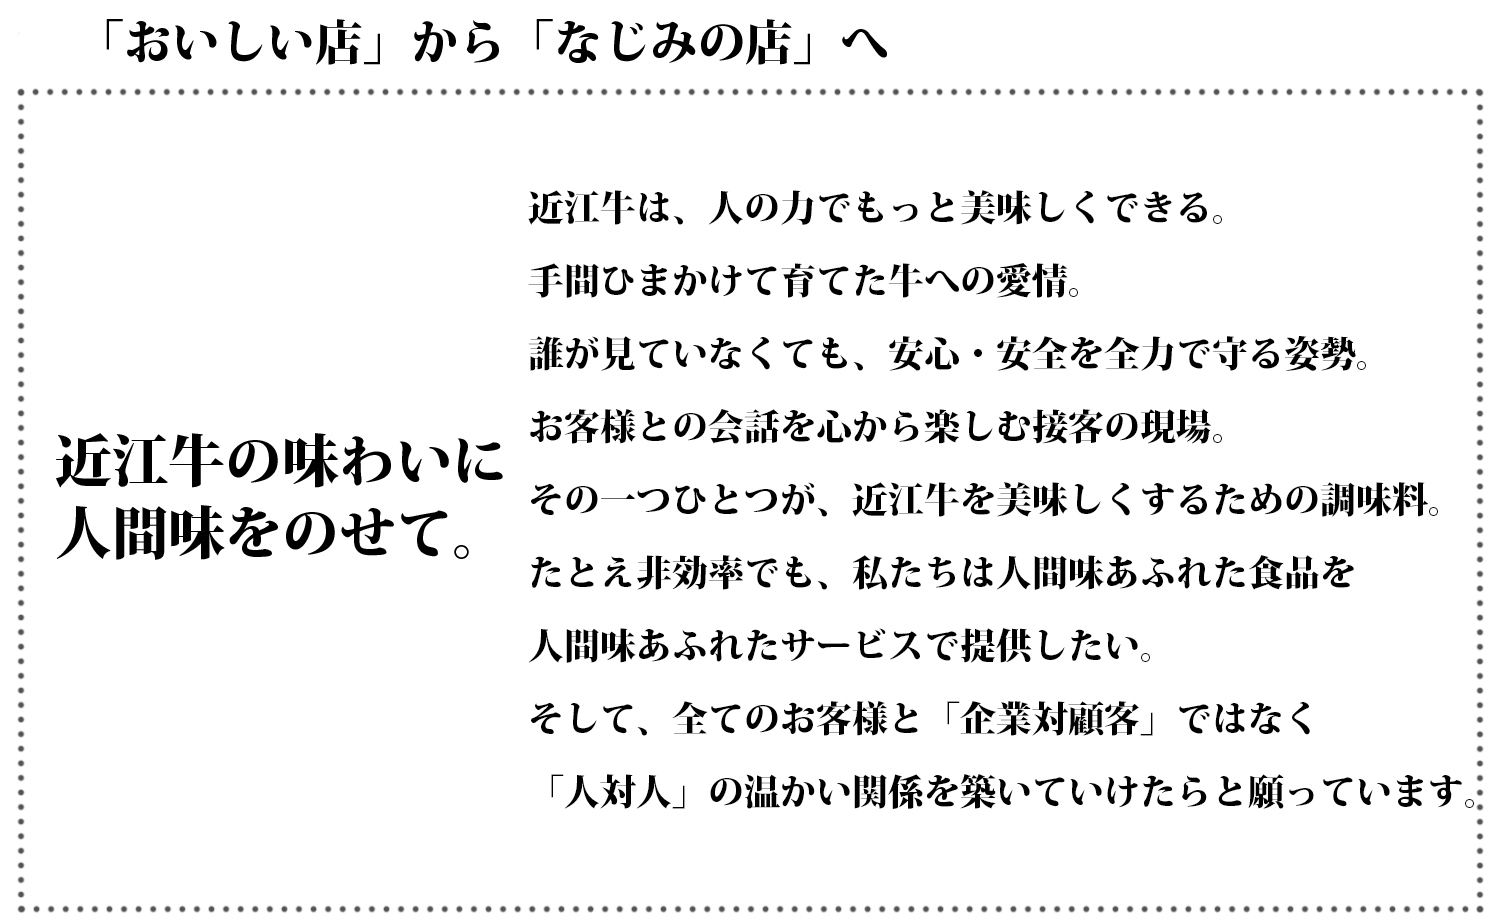 「おいしい店」から「なじみの店」へ
近江牛の味わいに
人間味をのせて。
近江牛は、人の力でもっと美味しくできる。
手間ひまかけて育てた牛への愛情。
誰が見ていなくても、安心・安全を全力で守る姿勢。
お客様との会話を心から楽しむ接客の現場。
その一つひとつが、近江牛を美味しくするための調味料。
たとえ非効率でも、私たちは人間味あふれた食品を
人間味あふれたサービスで提供したい。
そして、全てのお客様と「企業対顧客」ではなく
「人対人」の温かい関係を築いていけたらと願っています。